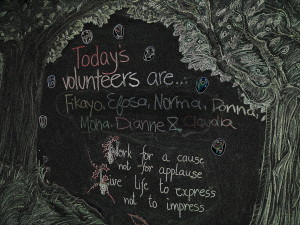 Today's
volunteers are...
Fikayo, Efosa, Norma, Donna,
Mona, Dianne & Claudia
Work for a cause
not for applause
Live life to express
not to impress